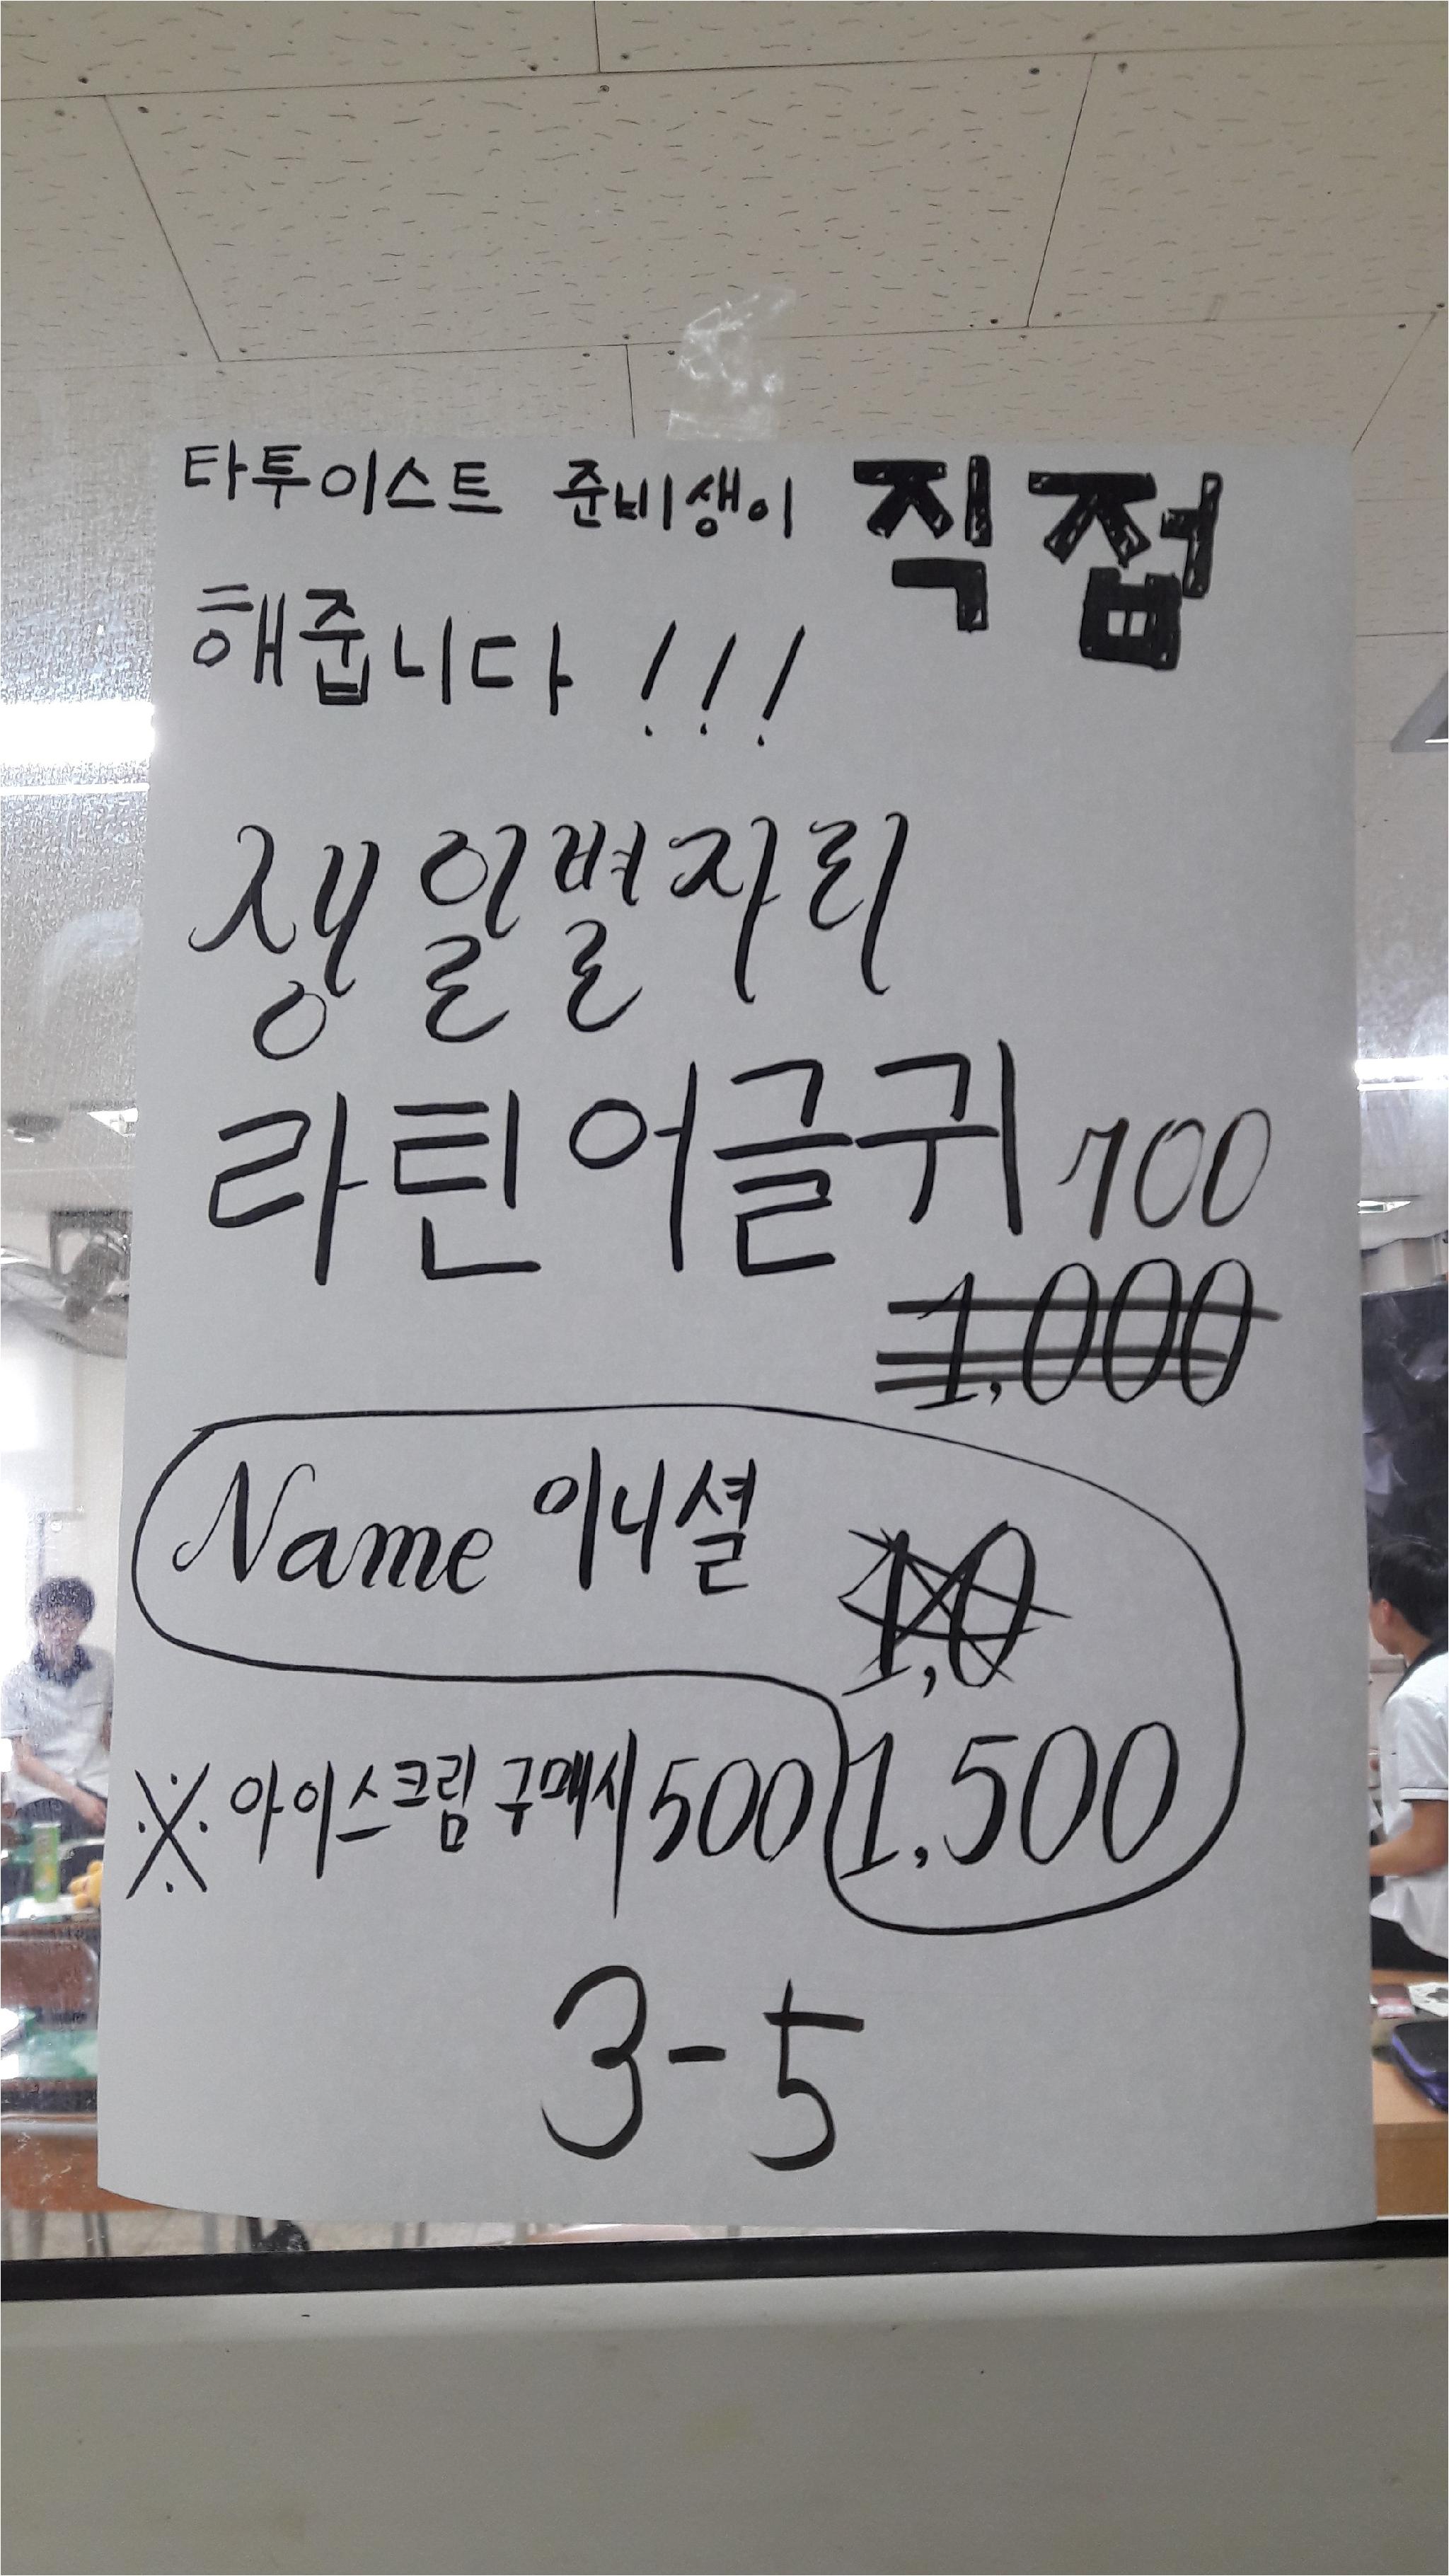 타투이스트 준비생이 직접
해줍니다!!!
생일별자리
라틴어글귀 700
1,000
Name 이니셜
1,0
※ 아이스크림 구매시 500
1,500
3-5